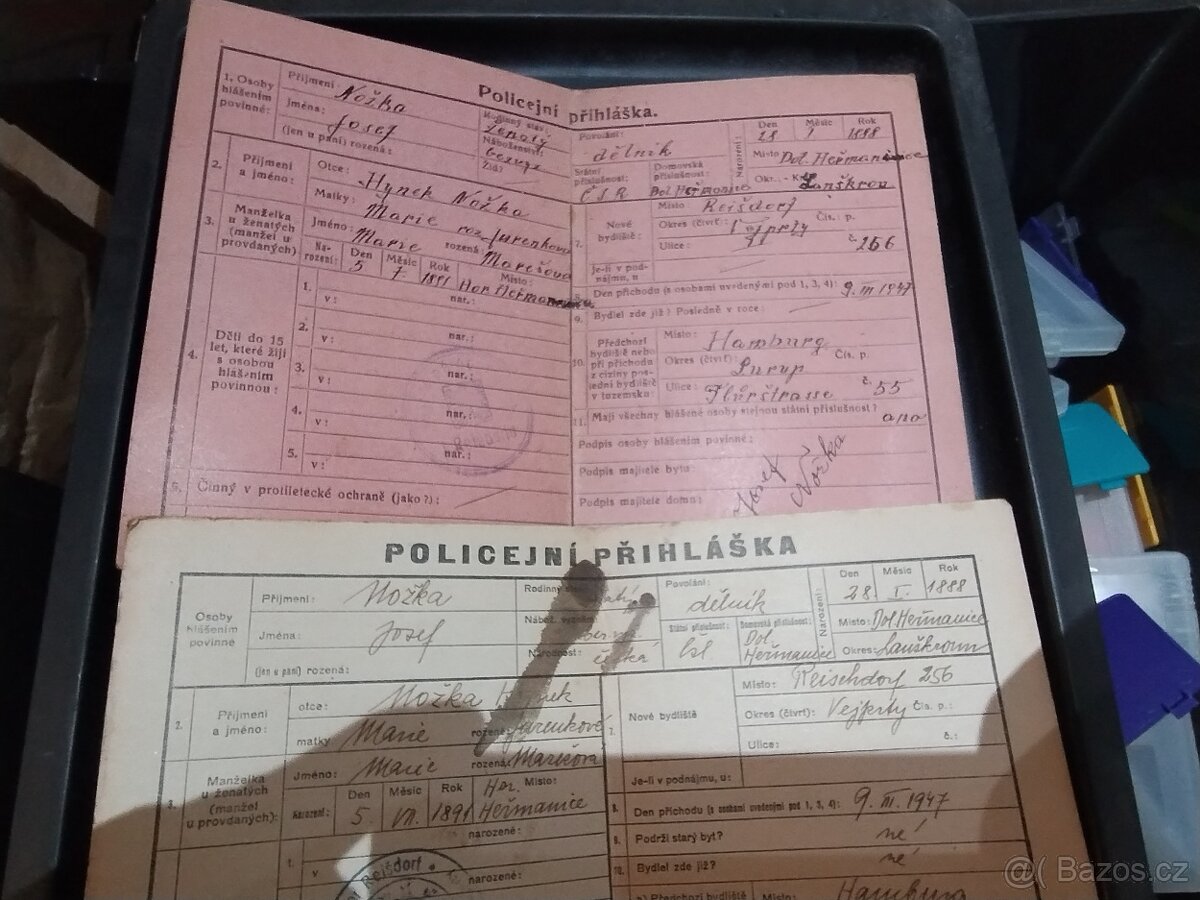 Policejní přihláška.
1. Osoby hlášením povinné:
Příjmení: Nožka
Jména: Josef
(jen u paní) rozená:
Rodinný stav:
ženatý
Náboženství:
Povolání:
dělník
Státní příslušnost: Č.S.R.
Domovská příslušnost:
Narození:
Den 28 Měsíc 1 Rok 1888
Místo: Dol. Heřmanice
Lanškroun
2. Příjmení a jméno:
Otce: Hynek Nožka
Matky: Marie roz. Jurenková
3. Manželka u ženatých (manžel u provdaných)
Jméno: Marie rozená: Marešová
Narození: Den 5 Měsíc 7 Rok 1891 Místo: Hor. Heřmanice
4. Děti do 15 let, které žijí s osobou hlášením povinnou:
1. v: nar.:
2. v: nar.:
3. v: nar.:
4. v: nar.:
5. v: nar.:
5. Činný v protiletecké ochraně (jako?):
7. Nové bydliště:
Místo Reišdorf
Okres (čtvrť): Vejprty Čís. p.
Ulice: č. 256
Je-li v podnájmu, u
8. Den příchodu (s osobami uvedenými pod 1, 3, 4): 9. III. 1947
9. Bydlel zde již? Posledně v roce:
10. Předchozí bydliště nebo při příchodu z ciziny poslední bydliště v tuzemsku:
Místo: Hamburg
Okres (čtvrť): Lurup Čís. p.
Ulice: Flurštrasse č. 55
11. Mají všechny hlášené osoby stejnou státní příslušnost? ano
Podpis osoby hlášením povinné:
Podpis majitele bytu:
Podpis majitele domu:
Josef Nožka
POLICEJNÍ PŘIHLÁŠKA
Osoby hlášením povinné
Příjmení: Nožka
Jména: Josef
(jen u paní) rozená:
Rodinný
Nábož. vyznání:
Národnost: česká
Povolání:
dělník
Státní příslušnost: čsl.
Domovská příslušnost: Dol. Heřmanice
Narození:
Den 28 Měsíc I. Rok 1888
Místo: Dol Heřmanice
Okres: Lanškroun
2. Příjmení a jméno:
otce: Nožka Hynek
matky: Marie rozená Jurenková
3. Manželka u ženatých (manžel u provdaných):
Jméno: Marie rozená: Marešová
Narození: Den 5. Měsíc VII. Rok 1891 Místo: Hor. Heřmanice
1. v narozené:
narozené:
Reišdorf
7. Nové bydliště
Místo: Reischdorf 256
Okres (čtvrť): Vejprty Čís. p.:
Ulice: č.:
Je-li v podnájmu, u:
8. Den příchodu (s osobami uvedenými pod 1, 3, 4): 9. III. 1947
9. Podrží starý byt? ne!
10. Bydlel zde již? ne
a) Předchozí bydliště Místo: Hamburg
@( Bazos.cz